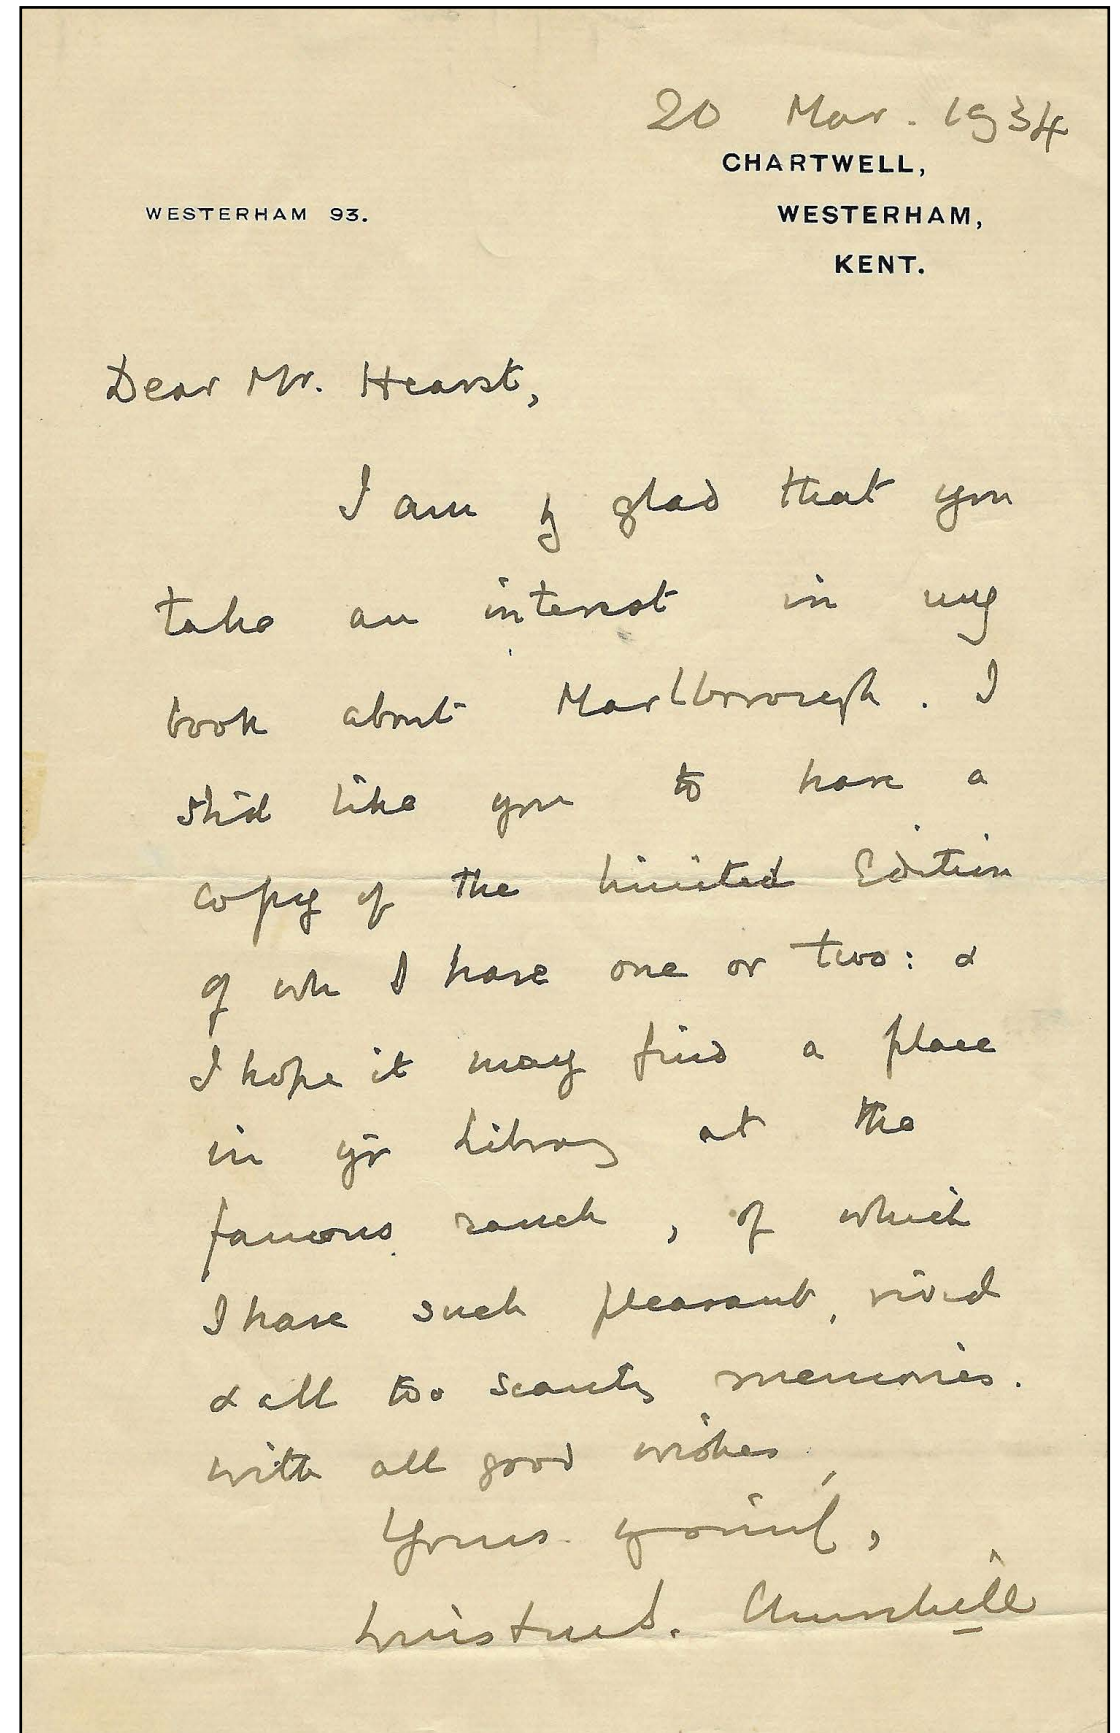 20 Mar. 1934
CHARTWELL,
WESTERHAM 93.
WESTERHAM,
KENT.
Dear Mr. Hearst,
I am glad that you
take an interest in my
book about Marlborough. I
shd like you to have a
copy of the Limited Edition
of wh I have one or two: &
I hope it may find a place
in yr Library at the
famous ranch, of which
I have such pleasant, vivid
& all too scanty memories.
With all good wishes,
Yours
Winston S. Churchill